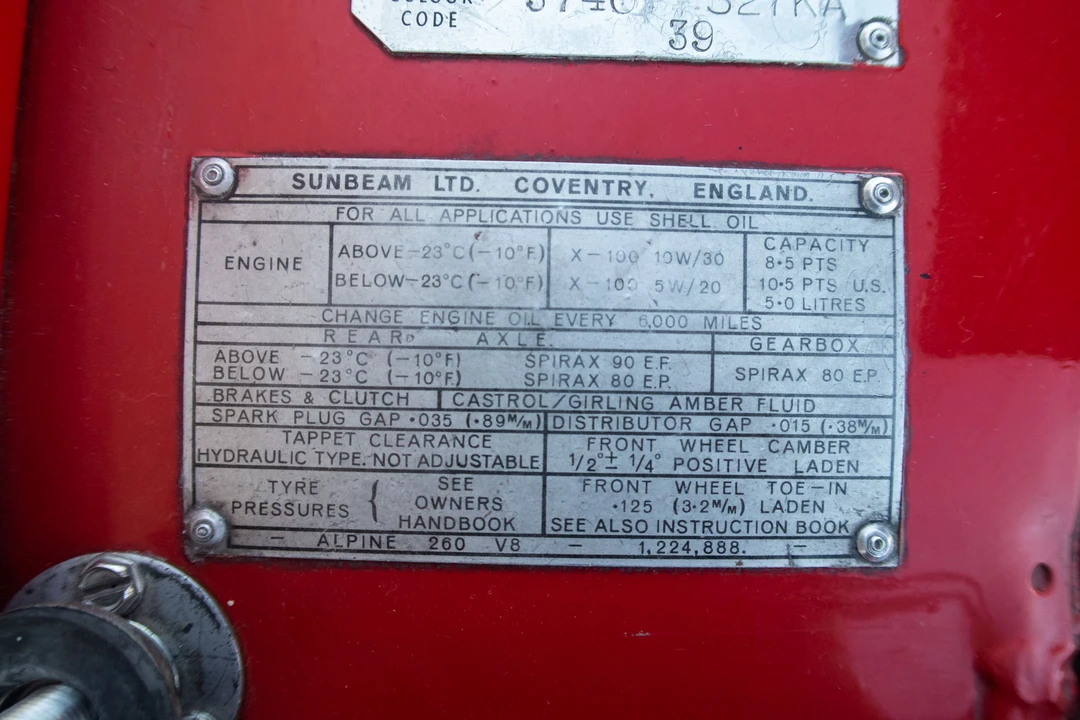 CODE
39
SUNBEAM LTD. COVENTRY, ENGLAND.
FOR ALL APPLICATIONS USE SHELL OIL
ENGINE
ABOVE -23°C (-10°F.) X-100 10W/30
BELOW -23°C (-10°F.) X-100 5W/20
CAPACITY
8·5 PTS
10·5 PTS U.S.
5·0 LITRES
CHANGE ENGINE OIL EVERY 6,000 MILES
REAR AXLE. GEARBOX
ABOVE -23°C (-10°F.) SPIRAX 90 E.P.
BELOW -23°C (-10°F.) SPIRAX 80 E.P.
SPIRAX 80 E.P.
BRAKES & CLUTCH CASTROL/GIRLING AMBER FLUID
SPARK PLUG GAP ·035 (·89M/M) DISTRIBUTOR GAP ·015 (·38M/M)
TAPPET CLEARANCE
HYDRAULIC TYPE. NOT ADJUSTABLE
FRONT WHEEL CAMBER
1/2° ± 1/4° POSITIVE LADEN
TYRE PRESSURES { SEE
OWNERS
HANDBOOK
FRONT WHEEL TOE-IN
·125 (3·2M/M) LADEN
SEE ALSO INSTRUCTION BOOK
- ALPINE 260 V8 - 1,224,888. -